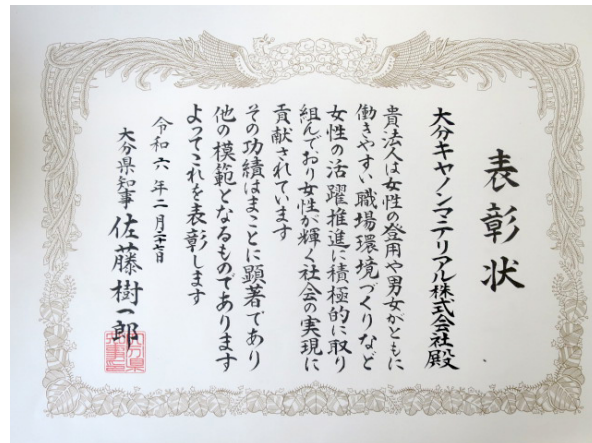 表彰状
大分キヤノンマテリアル株式会社殿
貴法人は女性の登用や男女がともに
働きやすい職場環境づくりなど
女性の活躍推進に積極的に取り
組んでおり女性が輝く社会の実現に
貢献されています
その功績はまことに顕著であり
他の模範となるものであります
よってこれを表彰します
令和六年二月二十七日
大分県知事 佐藤樹一郎